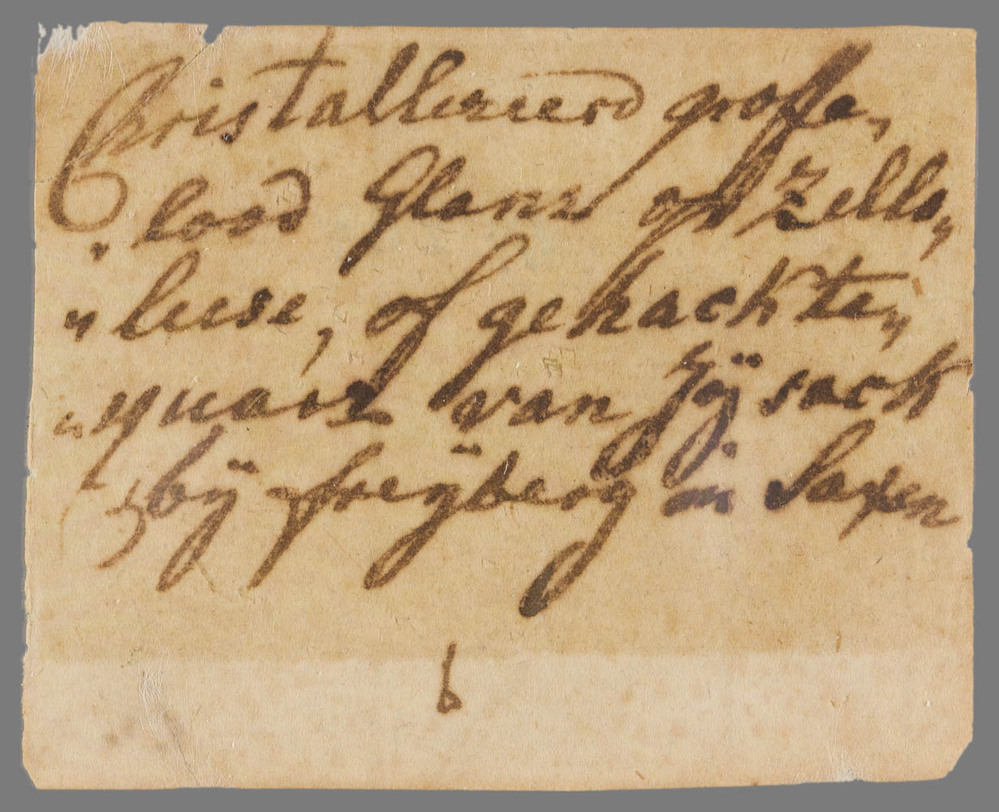 Cristalliseerd groffe,
lood Glanz op Zellu„
„luese, of gehackte„
„quarz van Sÿsack
bÿ freÿberg in Saxen
6